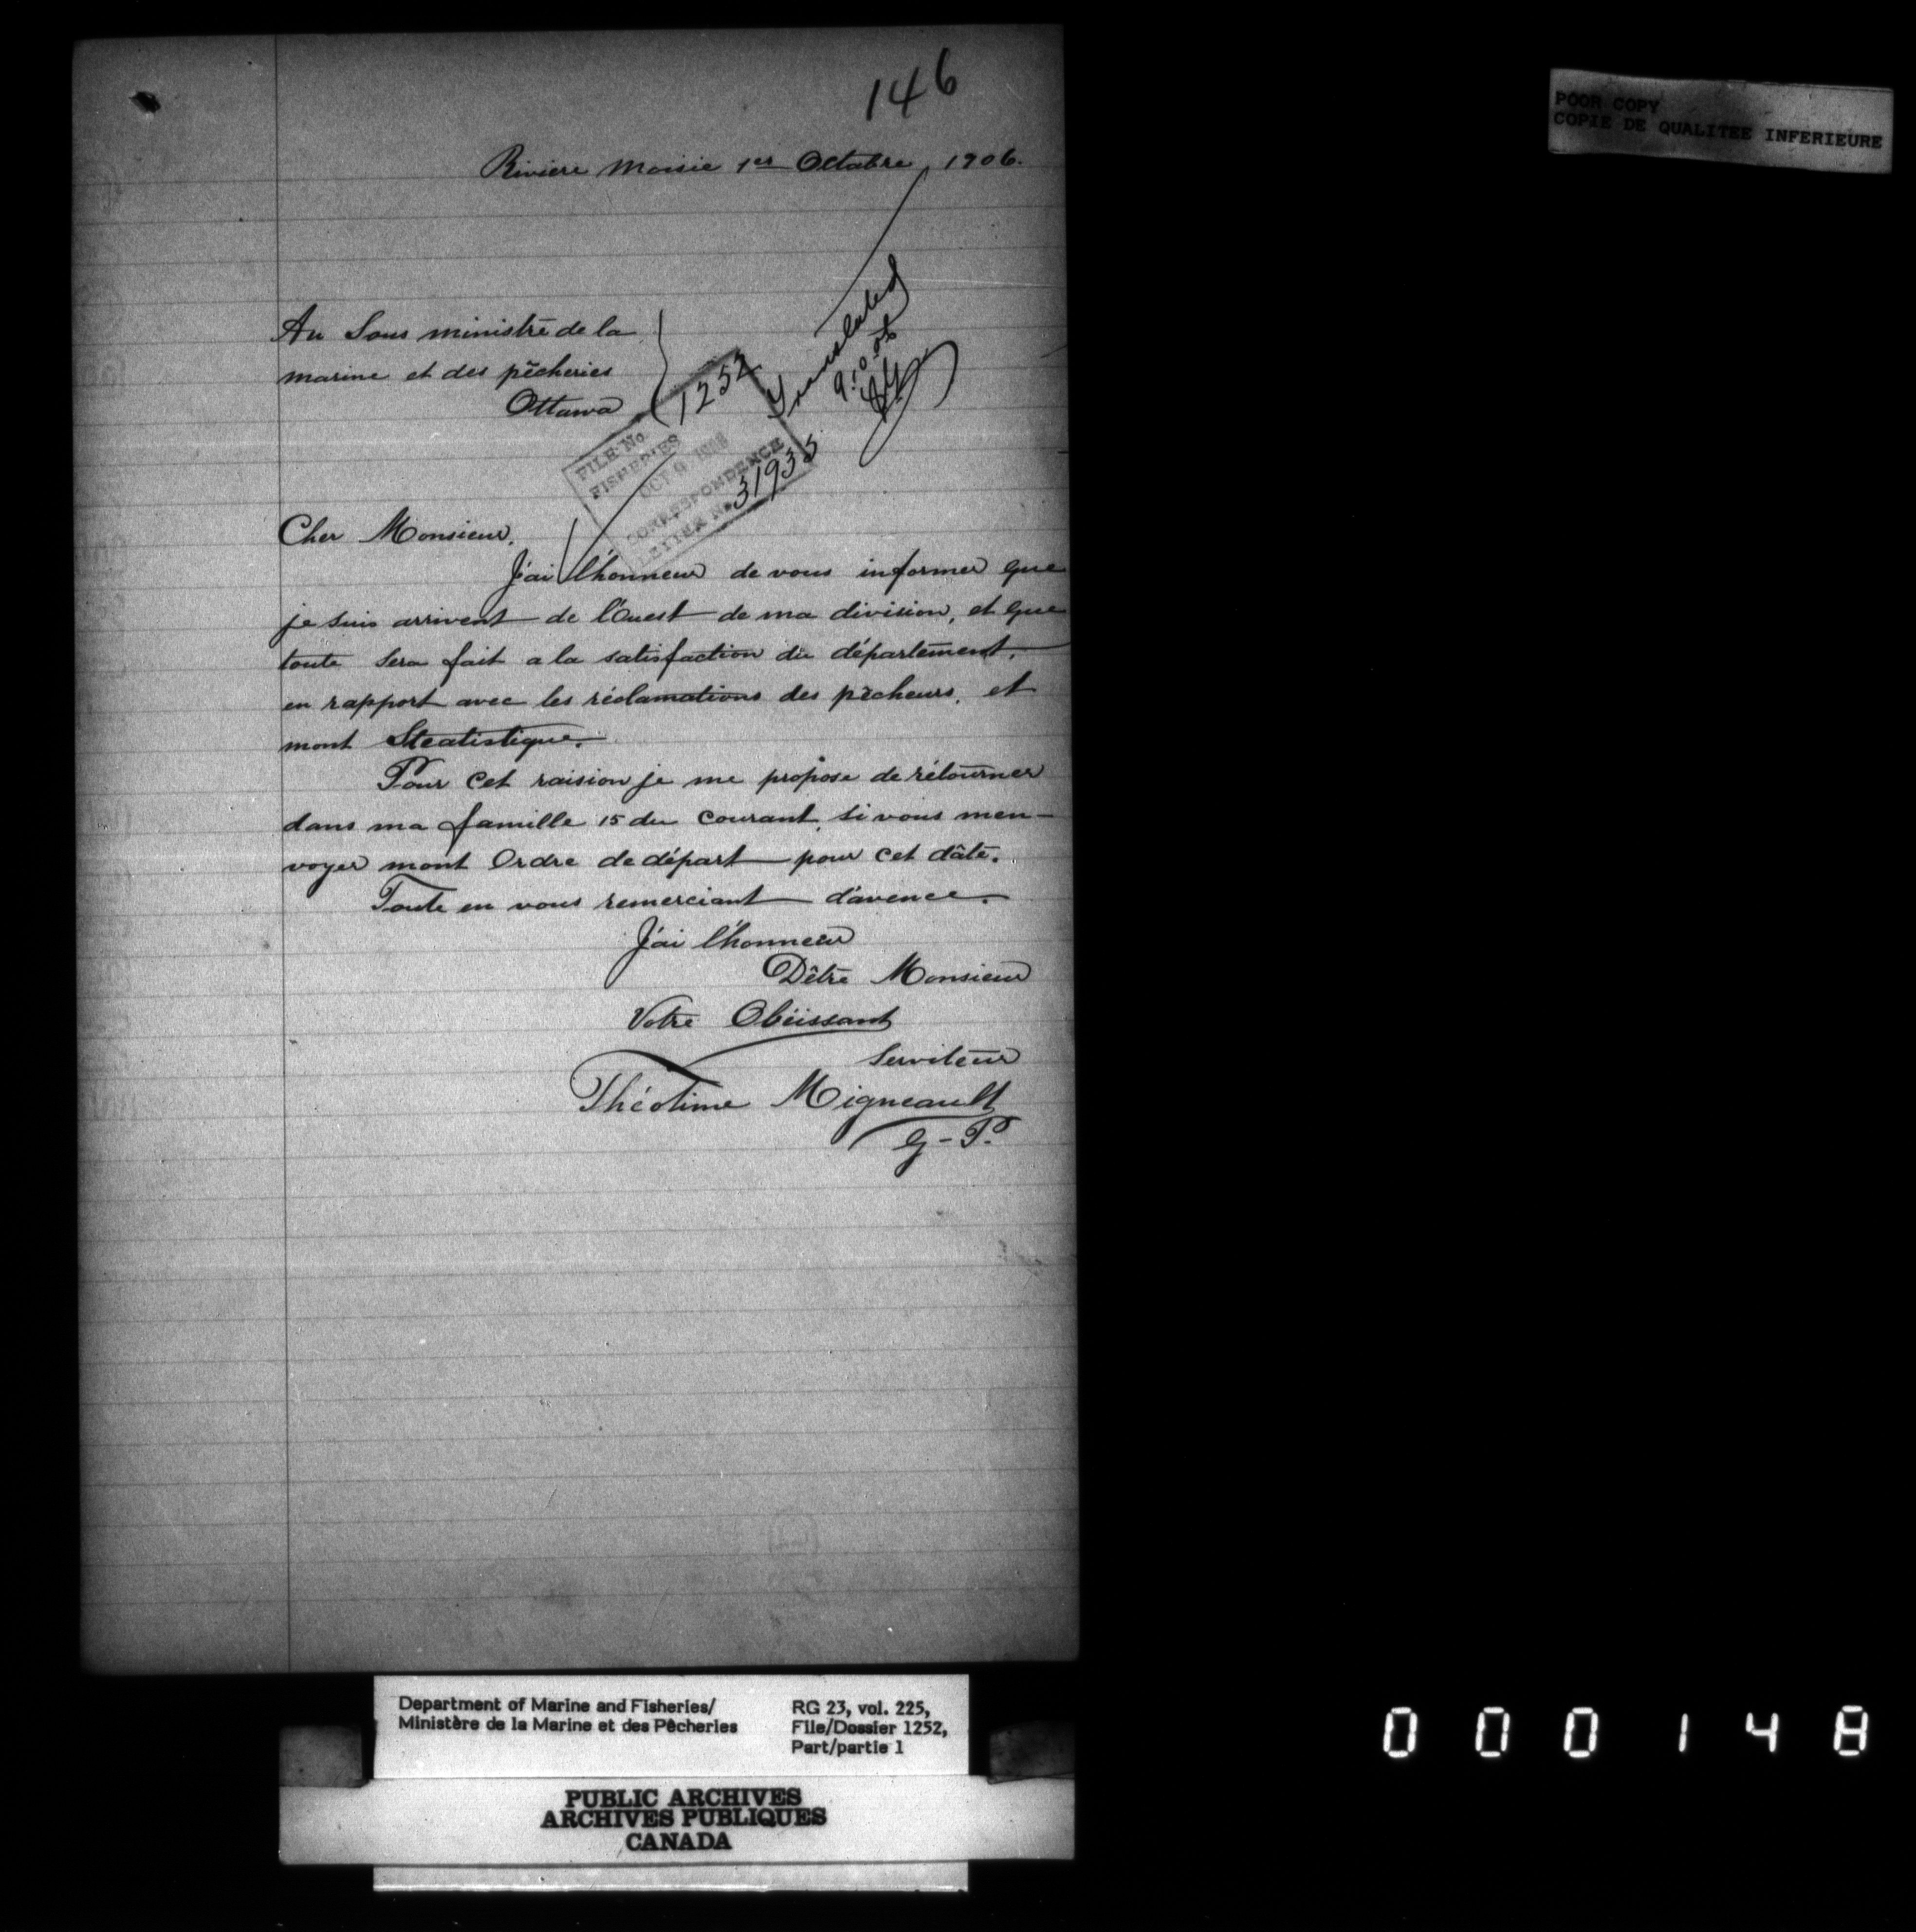 146
POOR COPY
COPIE DE QUALITEE INFERIEURE
Riviere Moisie 1er Octobre, 1906.
Au Sous ministre de la
marine et des pêcheries
Ottawa
Translated
9.10.06
1252
FILE No.
FISHERIES
OCT 9 1906
CORRESPONDENCE
LETTER No. 31935
Cher Monsieur.
J'ai l'honneur de vous informer que
je suis arrivent de l'Ouest de ma division, et que
toute sera fait a la satisfaction du département,
en rapport avec les réclamations des pêcheurs, et
mont Steatistique.
Pour cet raision je me propose de rétourner
dans ma famille 15 du Courant, si vous men-
voyer mont Ordre de départ pour cet dâte.
Toute en vous remerciant d'avence.
J'ai l'honneur
Dêtre Monsieur
Votre Obéissant
Serviteur
Théotime Migneault
G-P.
Department of Marine and Fisheries/
Ministère de la Marine et des Pêcheries
RG 23, vol. 225,
File/Dossier 1252,
Part/partie 1
PUBLIC ARCHIVES
ARCHIVES PUBLIQUES
CANADA
000148